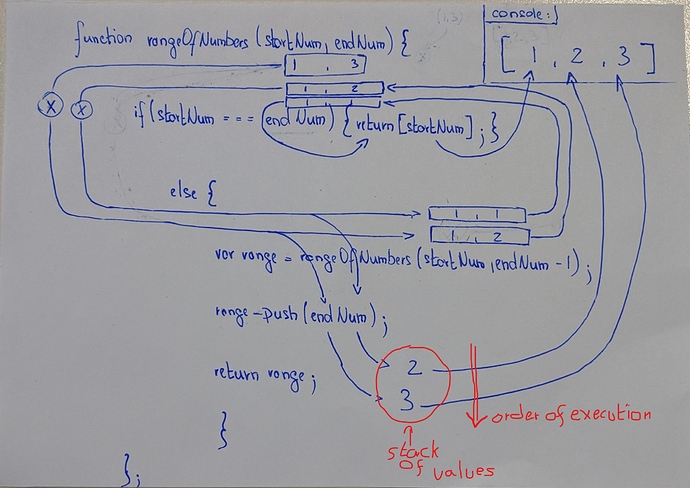 console:
function rangeOfNumbers (startNum, endNum) {
[ 1 , 2 , 3 ]
1 , 3
1 , 2
1 , 1
X X
if (startNum === endNum) { return [startNum] ; }
else {
1 , 1
1 , 2
var range = rangeOfNumbers (startNum, endNum - 1) ;
range-push (endNum) ;
2
return range ;
3
order of execution
}
stack
of values
};